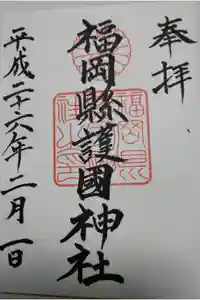 奉拝
福岡縣護國神社
平成二十六年二月一日